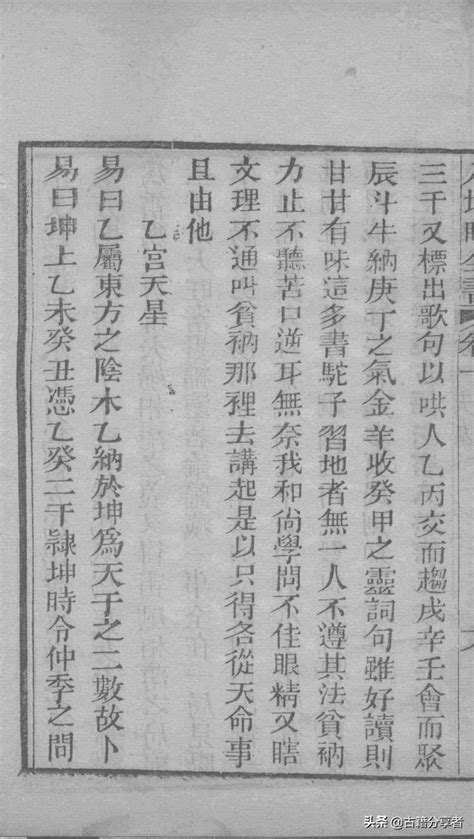 三千又標出歌句以哄人乙丙交而趨戌辛壬會而聚
辰斗牛納庚丁之氣金羊收癸甲之靈詞句雖好讀則
甘甘有味這多書駝子習地者無一人不遵其法貧衲
力止不聽苦口逆耳無奈我和尙學問不佳眼精又瞎
文理不通叫貧衲那裡去講起是以只得各從天命事
且由他
乙宮天星
易曰乙屬東方之陰木乙納於坤爲天干之二數故卜
易曰坤上乙未癸丑憑乙癸二干隷坤時令仲季之間
头条@古籍分享者